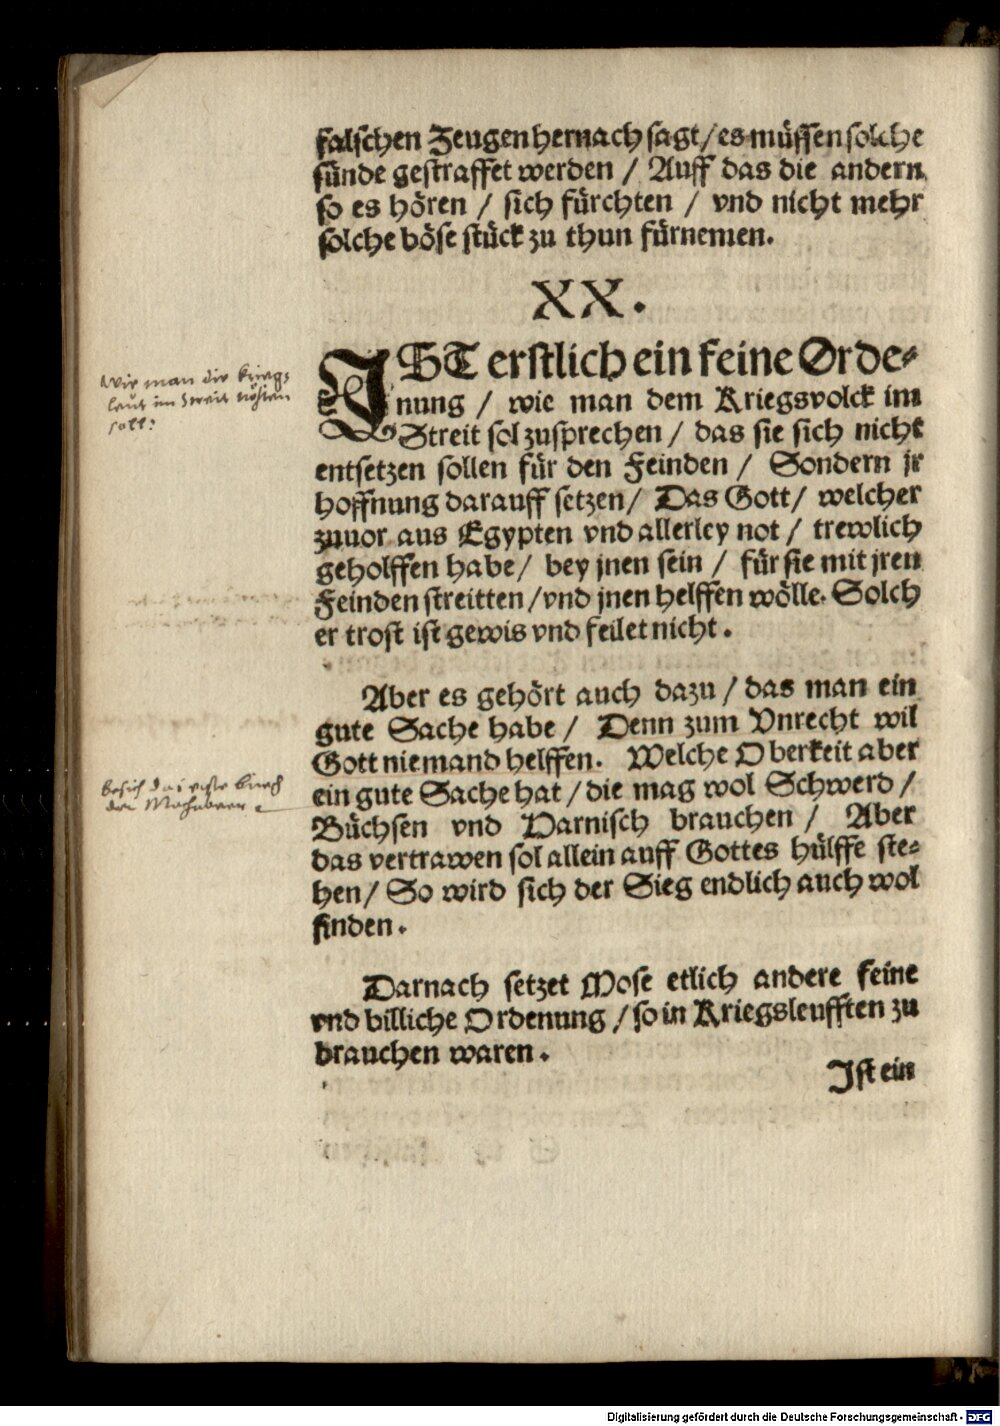 falschen Zeugen hernach sagt/es müssen solche
sünde gestraffet werden / Auff das die andern
so es hören / sich fürchten / vnd nicht mehr
solche böse stück zu thun fürnemen.
XX.
IST erstlich ein feine Orde⸗
nung / wie man dem Kriegsvolck im
Streit sol zusprechen / das sie sich nicht
entsetzen sollen für den Feinden / Sondern jr
hoffnung darauff setzen/ Das Gott/ welcher
zuuor aus Egypten vnd allerley not / trewlich
geholffen habe/ bey jnen sein / für sie mit jren
Feinden streitten /vnd jnen helffen wölle. Solch
er trost ist gewis vnd feilet nicht.
Wie man die kriegs
leut im streit trösten
soll:
Aber es gehört auch dazu / das man ein
gute Sache habe / Denn zum Vnrecht wil
Gott niemand helffen. Welche Oberkeit aber
ein gute Sache hat /die mag wol Schwerd /
Büchsen vnd Harnisch brauchen / Aber
das vertrawen sol allein auff Gottes hülffe ste⸗
hen/ So wird sich der Sieg endlich auch wol
finden.
besich das erste buch
der Machabeer
Darnach setzet Mose etlich andere feine
vnd billiche Ordenung /so in Kriegsleufften zu
brauchen waren.
Ist ein
Digitalisierung gefördert durch die Deutsche Forschungsgemeinschaft - DFG